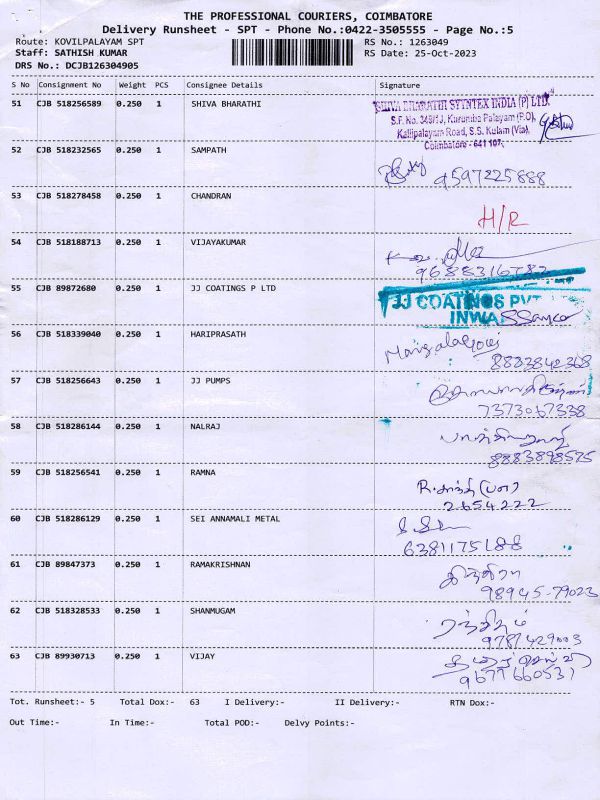 THE PROFESSIONAL COURIERS, COIMBATORE
Delivery Runsheet - SPT - Phone No.:0422-3505555 - Page No.:5
Route: KOVILPALAYAM SPT RS No.: 1263049
Staff: SATHISH KUMAR RS Date: 25-Oct-2023
DRS No.: DCJB126304905
S No Consignment No Weight PCS Consignee Details Signature
51 CJB 518256589 0.250 1 SHIVA BHARATHI
SHIVA BHARATHI SYNTEX INDIA (P) LTD
S.F. No. 348/1J, Kurumba Palayam (P.O),
Kallipalayam Road, S.S. Kulam (Via),
Coimbatore - 641 107.
52 CJB 518232565 0.250 1 SAMPATH
9597225888
53 CJB 518278458 0.250 1 CHANDRAN H/R
54 CJB 518188713 0.250 1 VIJAYAKUMAR
9688316782
55 CJB 89872680 0.250 1 JJ COATINGS P LTD JJ COATINGS PVT
INWA
56 CJB 518339040 0.250 1 HARIPRASATH
8883842368
57 CJB 518256643 0.250 1 JJ PUMPS
7373067338
58 CJB 518286144 0.250 1 NALRAJ
8883898575
59 CJB 518256541 0.250 1 RAMNA R. சாந்தி
2654222
60 CJB 518286129 0.250 1 SEI ANNAMALI METAL
6381175188
61 CJB 89847373 0.250 1 RAMAKRISHNAN இந்திரா
98945-79023
62 CJB 518328533 0.250 1 SHANMUGAM ரஞ்சிதம்
9787429003
63 CJB 89930713 0.250 1 VIJAY
9677660537
Tot. Runsheet:- 5 Total Dox:- 63 I Delivery:- II Delivery:- RTN Dox:-
Out Time:- In Time:- Total POD:- Delvy Points:-